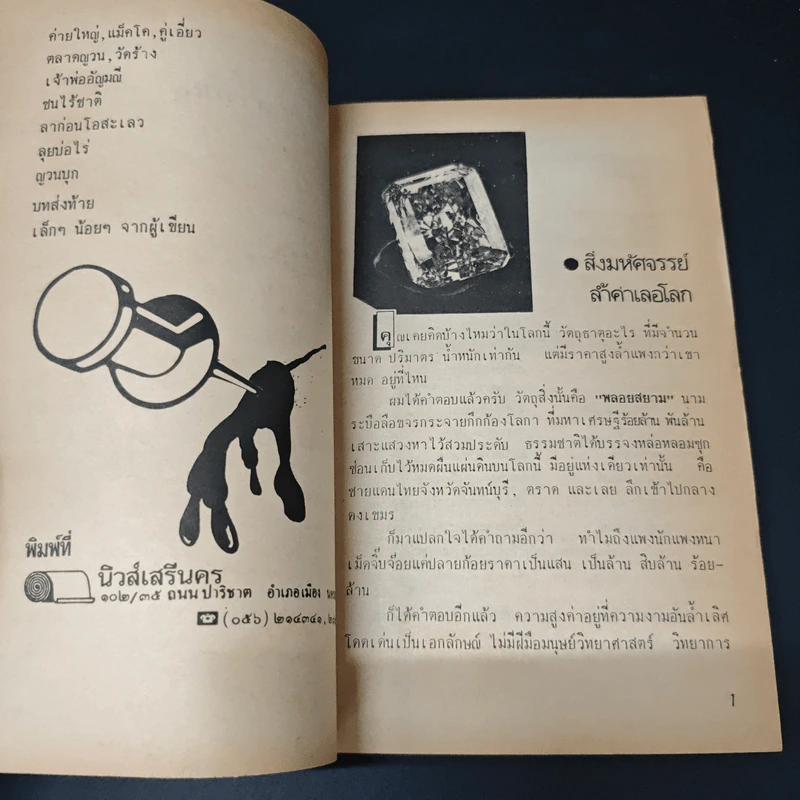 ค่ายใหญ่, แม็คโค, คู่เอี่ยว
ตลาดญวน, วัดร้าง
เจ้าพ่ออัญมณี
ชนไร้ชาติ
ลาก่อนโอสะเลว
ลุยบ่อไร่
ญวนบุก
บทส่งท้าย
เล็กๆ น้อยๆ จากผู้เขียน
พิมพ์ที่
นิวส์เสรีนคร
๑๐๒/๓๕ ถนนปาริชาต อำเภอเมือง
(๐๕๖) ๒๑๔๓๔๑,
● สิ่งมหัศจรรย์
ล้ำค่าเลอโลก
คุณเคยคิดบ้างไหมว่าในโลกนี้ วัตถุธาตุอะไร ที่มีจำนวน
ขนาด ปริมาตร น้ำหนักเท่ากัน แต่มีราคาสูงล้ำแพงกว่าเขา
หมด อยู่ที่ไหน
ผมได้คำตอบแล้วครับ วัตถุสิ่งนั้นคือ "พลอยสยาม" นาม
ระบือลือขจรกระจายกึกก้องโลกา ที่มหาเศรษฐีร้อยล้าน พันล้าน
เสาะแสวงหาไว้สวมประดับ ธรรมชาติได้บรรจงหล่อหลอมซุก
ซ่อนเก็บไว้หมดผืนแผ่นดินบนโลกนี้ มีอยู่แห่งเดียวเท่านั้น คือ
ชายแดนไทยจังหวัดจันทน์บุรี, ตราด และเลย ลึกเข้าไปกลาง
ดงเขมร
ก็มาแปลกใจได้คำถามอีกว่า ทำไมถึงแพงนักแพงหนา
เม็ดจิ๊บจ๊อยแค่ปลายก้อยราคาเป็นแสน เป็นล้าน สิบล้าน ร้อย-
ล้าน
ก็ได้คำตอบอีกแล้ว ความสูงค่าอยู่ที่ความงามอันล้ำเลิศ
โดดเด่นเป็นเอกลักษณ์ ไม่มีฝีมือมนุษย์วิทยาศาสตร์ วิทยาการ
1